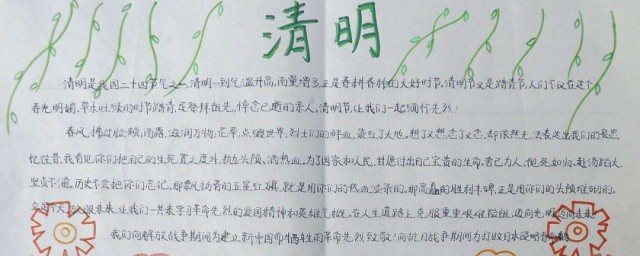 清明
清明是我国二十四节气之一,清明一到气温升高,雨量增多,正是春耕春种的大好时节,清明节又是踏青节,人们不仅在这个
春光明媚,草木吐绿的时节踏青,还祭拜祖先,悼念已逝的亲人,清明节,让我们一起缅怀先烈!
春风,拂过脸颊,雨露,滋润万物;花草,点缀世界,烈士们的鲜血,染红了大地,想了又想,念了又念,却依然无法表达出我们的哀思,
忆往昔,我看见你们把自己的生死,置之度外,抛头颅,洒热血,为了国家和人民,甘愿付出自己宝贵的生命,舍己为人,视死如归,赴汤蹈火,
坚贞不渝,历史不会把你们忘记,那飘扬着的五星红旗,就是用你们的热血染录的,那高矗的胜利丰碑,正是用你们的头颅堆砌的,
让我们一共来学习革命先烈的爱国精神和英雄气概,在人生道路上,克服重重艰难险阻,迈向光明
我们向解放战争期间为建立新中国而牺牲的革命先烈致敬!向抗日战争期间为打败日本侵略者